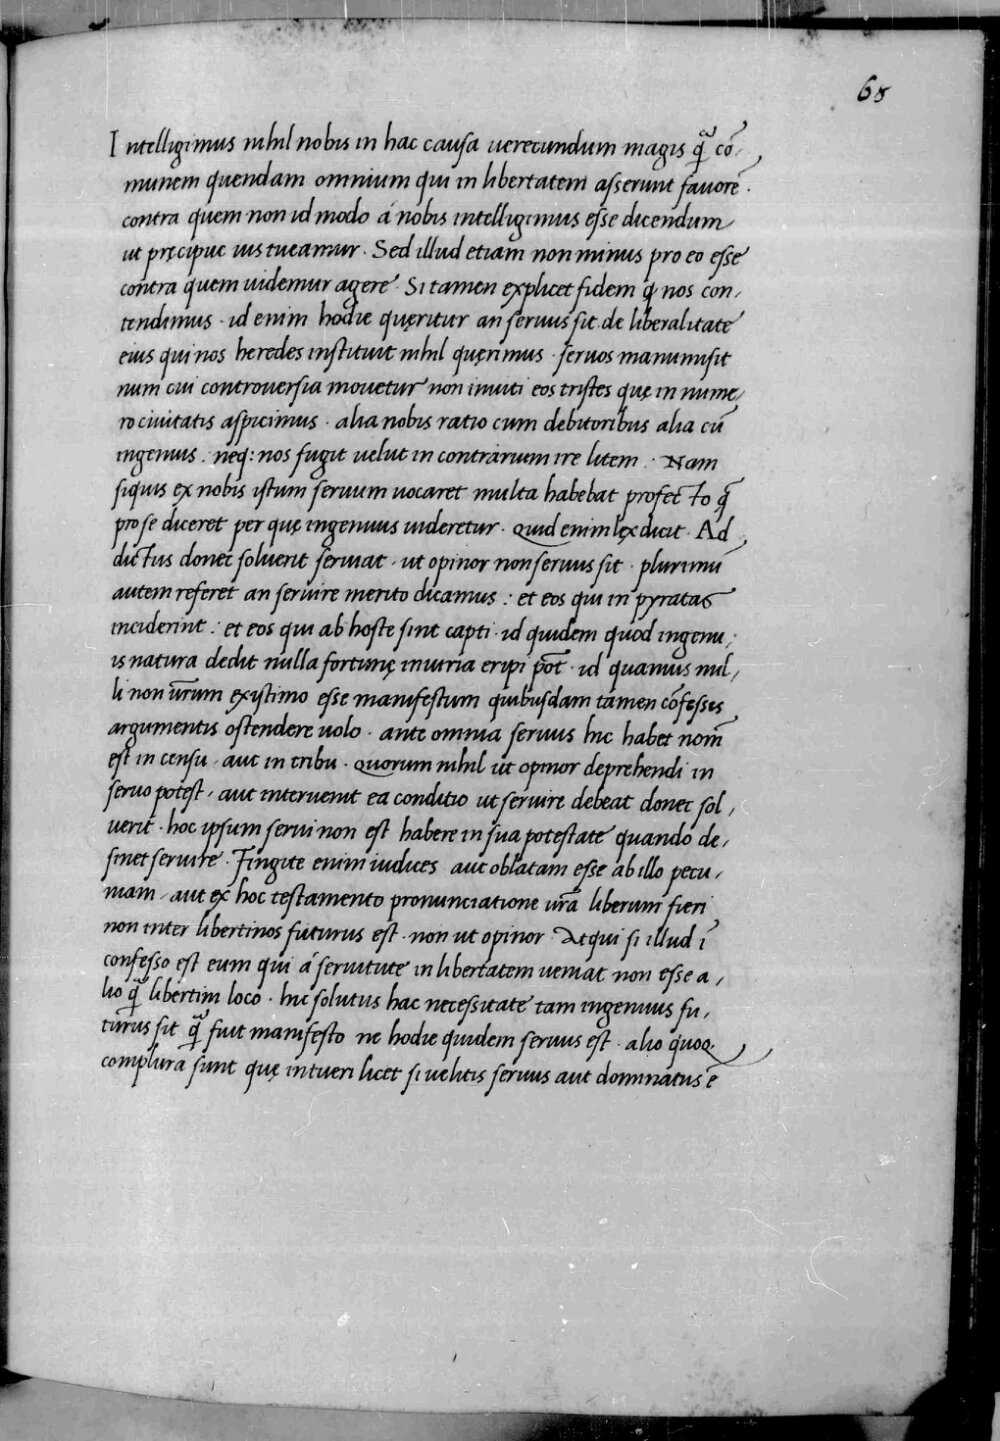 68
Intelligimus nihil nobis in hac causa uerecundum magis q̃ cõ,
munem quendam omnium qui in libertatem asserunt fauorẽ.
contra quem non id modo á nobis intelligimus esse dicendum
ut pręcipue ius tueamur. Sed illud etiam non minus pro eo esse
contra quem uidemur agere. Si tamen explicet fidem q̃ nos con,
tendimus. id enim hodie quęritur an seruus sit. de liberalitate
eius qui nos heredes instituit nihil quęrimus. seruos manumisit
num cui controuersia mouetur non inuiti eos tristes quę in nume,
ro ciuitatis aspicimus. alia nobis ratio cum debitoribus alia cũ
ingenuis. neq: nos fugit uelut in contrarium ire litem. Nam
siquis ex nobis istum seruum uocaret multa habebat profecto q̃
pro se diceret per quę ingenuus uideretur. Quid enim lex dicit. Ad,
dictus donec soluerit seruiat. ut opinor non seruus sit. plurimũ
autem referet an seruire merito dicamus: et eos qui in pyratas
inciderint: et eos qui ab hoste sint capti. id quidem quod ingenu,
is natura dedit nulla fortunę iniuria eripi põt. id quamuis nul,
li non ur̃um existimo esse manifestum quibusdam tamen cõfessis
argumentis ostendere uolo. ante omnia seruus hic habet nom̃
est in censu, aut in tribu. Quorum nihil ut opinor deprehendi in
seruo potest, aut interuenit ea conditio ut seruire debeat donec sol,
uerit. hoc ipsum serui non est habere in sua potestate quando de,
sinet seruire. Fingite enim iudices aut oblatam esse ab illo pecu,
niam, aut ex hoc testamento pronunciatione ur̃a liberum fieri
non inter libertinos futurus est. non ut opinor. Atqui si illud ĩ
confesso est eum qui á seruitute in libertatem ueniat non esse a,
lio q̃ libertini loco. hic solutus hac necessitate tam ingenuus fu,
turus sit q̃ fuit manifesto ne hodie quidem seruus est. alio quoq.
complura sunt quę intueri licet si uelitis seruus aut dominatus ẽ